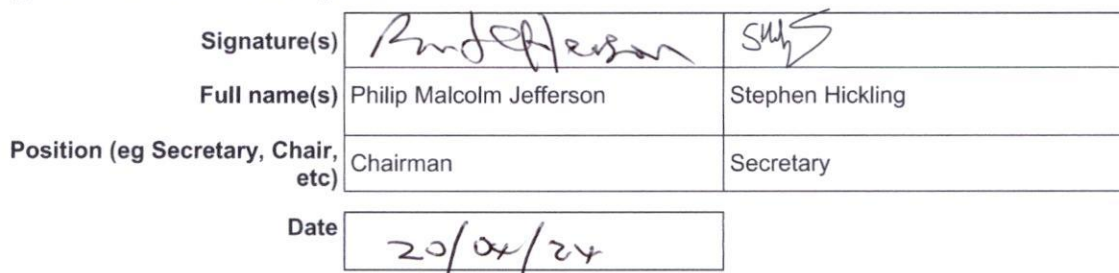 Signature(s)
Full name(s) Philip Malcolm Jefferson Stephen Hickling
Position (eg Secretary, Chair, etc) Chairman Secretary
Date 20/04/24